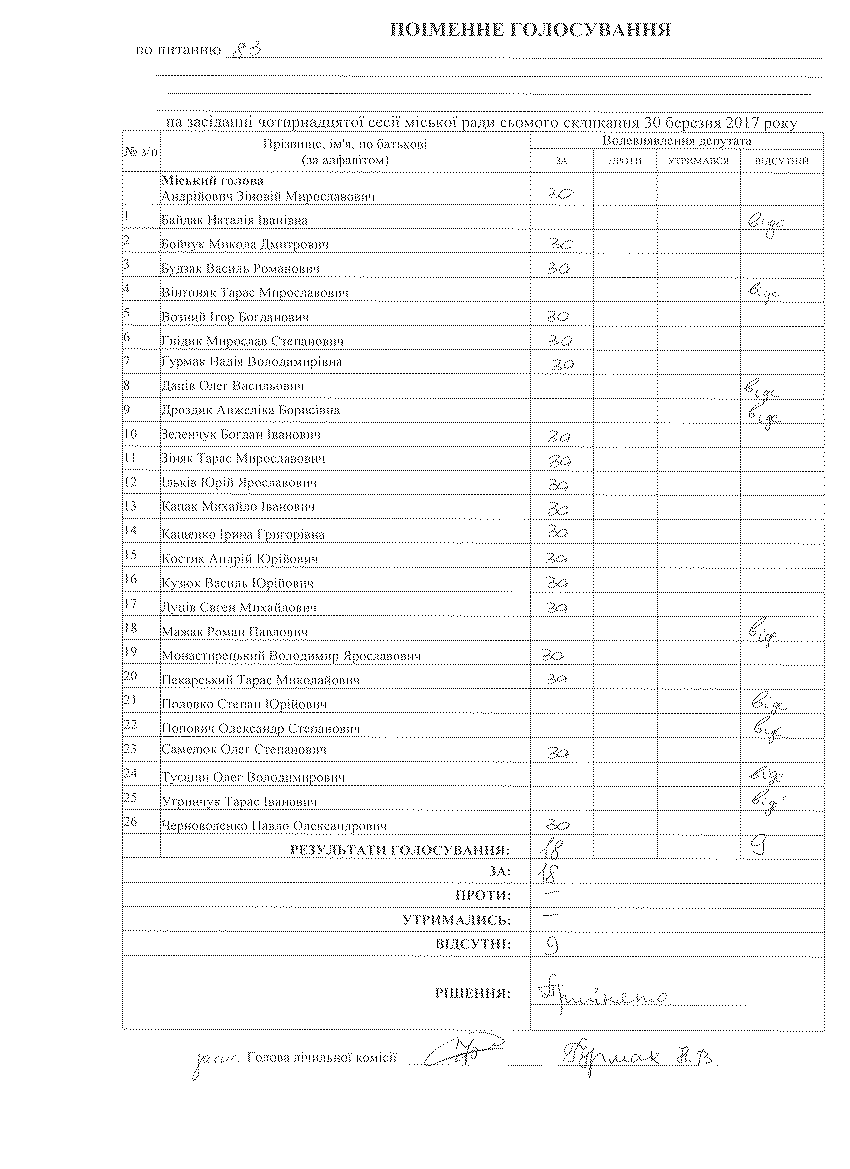 ПОІМЕННЕ ГОЛОСУВАННЯ
по питанню 83
на засіданні чотирнадцятої сесії міської ради сьомого скликання 30 березня 2017 року
№ з/п Прізвище, ім'я, по батькові (за алфавітом) Волевиявлення депутата
ЗА ПРОТИ УТРИМАВСЯ ВІДСУТНІЙ
Міський голова
Андрійович Зіновій Мирославович зо
1 Байдак Наталія Іванівна відс
2 Бойчук Микола Дмитрович зо
3 Будзак Василь Романович зо
4 Вінтоняк Тарас Мирославович відс
5 Возний Ігор Богданович зо
6 Гнідик Мирослав Степанович зо
7 Гурмак Надія Володимирівна зо
8 Данів Олег Васильович відс
9 Дроздик Анжеліка Борисівна відс
10 Зеленчук Богдан Іванович зо
11 Зіняк Тарас Мирославович зо
12 Ільків Юрій Ярославович зо
13 Капак Михайло Іванович зо
14 Кащенко Ірина Григорівна зо
15 Костик Андрій Юрійович зо
16 Кузюк Василь Юрійович зо
17 Луців Євген Михайлович зо
18 Мажак Роман Павлович відс
19 Монастирецький Володимир Ярославович зо
20 Пекарський Тарас Миколайович зо
21 Половко Степан Юрійович відс
22 Попович Олександр Степанович відс
23 Самелюк Олег Степанович зо
24 Олег Володимирович відс
25 Угринчук Тарас Іванович відс
26 Черноволенко Павло Олександрович зо
РЕЗУЛЬТАТИ ГОЛОСУВАННЯ: 18 9
ЗА: 18
ПРОТИ: —
УТРИМАЛИСЬ: —
ВІДСУТНІ: 9
РІШЕННЯ: Прийнято
Голова лічильної комісії Гурмак Н.В